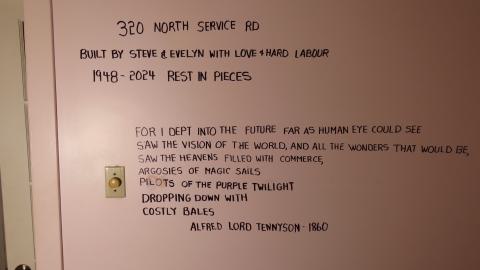 320 NORTH SERVICE RD
BUILT BY STEVE & EVELYN WITH LOVE & HARD LABOUR
1948-2024 REST IN PIECES
FOR I DEPT INTO THE FUTURE FAR AS HUMAN EYE COULD SEE
SAW THE VISION OF THE WORLD, AND ALL THE WONDERS THAT WOULD BE,
SAW THE HEAVENS FILLED WITH COMMERCE,
ARGOSIES OF MAGIC SAILS
PILOTS OF THE PURPLE TWILIGHT
DROPPING DOWN WITH
COSTLY BALES
ALFRED LORD TENNYSON - 1860